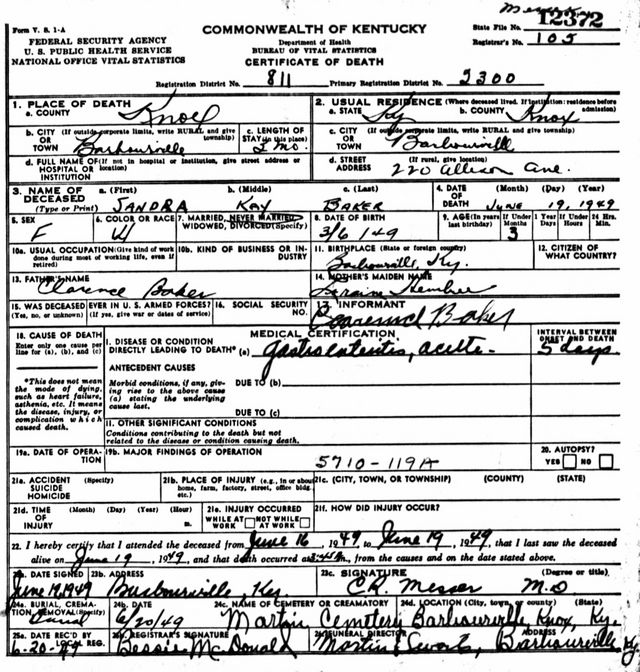 Form V. S. 1-A
FEDERAL SECURITY AGENCY
U. S. PUBLIC HEALTH SERVICE
NATIONAL OFFICE VITAL STATISTICS
COMMONWEALTH OF KENTUCKY
Department of Health
BUREAU OF VITAL STATISTICS
CERTIFICATE OF DEATH
State File No. 12372
Registrar's No. 105
Registration District No. 811 Primary Registration District No. 2300
1. PLACE OF DEATH
a. COUNTY Knox
2. USUAL RESIDENCE (Where deceased lived. If institution: residence before admission)
a. STATE Ky b. COUNTY Knox
b. CITY (If outside corporate limits, write RURAL and give township)
OR TOWN Barbourville
c. LENGTH OF STAY (in this place) 2 mo.
c. CITY (If outside corporate limits, write RURAL and give township)
OR TOWN Barbourvill
d. FULL NAME OF (If not in hospital or institution, give street address or location)
HOSPITAL OR INSTITUTION
d. STREET ADDRESS (If rural, give location)
220 Allison Ave.
3. NAME OF DECEASED (Type or Print)
a. (First) b. (Middle) c. (Last)
SANDRA KAY BAKER
4. DATE OF DEATH (Month) (Day) (Year)
JUNE 19, 1949
5. SEX
F
6. COLOR OR RACE
W
7. MARRIED, NEVER MARRIED, WIDOWED, DIVORCED (Specify)
8. DATE OF BIRTH
3/6/49
9. AGE (In years last birthday) If Under 1 Year If Under 24 Hrs.
Months Days Hours Min.
3
10a. USUAL OCCUPATION (Give kind of work done during most of working life, even if retired)
10b. KIND OF BUSINESS OR INDUSTRY
11. BIRTHPLACE (State or foreign country)
Barbourville, Ky.
12. CITIZEN OF WHAT COUNTRY?
13. FATHER'S NAME
Clarence Baker
14. MOTHER'S MAIDEN NAME
Loraine Hembree
15. WAS DECEASED EVER IN U. S. ARMED FORCES?
(Yes, no, or unknown) (If yes, give war or dates of service)
16. SOCIAL SECURITY NO.
17. INFORMANT
Baker
18. CAUSE OF DEATH
Enter only one cause per line for (a), (b), and (c)
*This does not mean the mode of dying, such as heart failure, asthenia, etc. It means the disease, injury, or complication which caused death.
MEDICAL CERTIFICATION
INTERVAL BETWEEN ONSET AND DEATH
I. DISEASE OR CONDITION
DIRECTLY LEADING TO DEATH* (a) Gastroenteritis, acute. 5 days.
ANTECEDENT CAUSES
Morbid conditions, if any, giving rise to the above cause (a) stating the underlying cause last.
DUE TO (b)
DUE TO (c)
II. OTHER SIGNIFICANT CONDITIONS
Conditions contributing to the death but not related to the disease or condition causing death.
19a. DATE OF OPERATION
19b. MAJOR FINDINGS OF OPERATION
5710-119A
20. AUTOPSY?
YES NO
21a. ACCIDENT SUICIDE HOMICIDE (Specify)
21b. PLACE OF INJURY (e.g., in or about home, farm, factory, street, office bldg., etc.)
21c. (CITY, TOWN, OR TOWNSHIP) (COUNTY) (STATE)
21d. TIME OF INJURY (Month) (Day) (Year) (Hour) m.
21e. INJURY OCCURRED
WHILE AT WORK NOT WHILE AT WORK
21f. HOW DID INJURY OCCUR?
22. I hereby certify that I attended the deceased from June 16, 1949 to June 19, 1949, that I last saw the deceased
alive on June 19, 1949, and that death occurred at m., from the causes and on the date stated above.
23a. DATE SIGNED
23b. ADDRESS
23c. SIGNATURE (Degree or title)
June 19, 1949 Barbourville, Ky. CR. Messer M.D
24a. BURIAL, CREMATION, REMOVAL (Specify)
Burial
24b. DATE
6/20/49
24c. NAME OF CEMETERY OR CREAMATORY
Martin Cemetery
24d. LOCATION (City, town, or county) (State)
Barbourville, Knox, Ky.
25a. DATE REC'D BY LOCAL REG.
6-20-49
25b. REGISTRAR'S SIGNATURE
Bessie McDonald
26. FUNERAL DIRECTOR ADDRESS
Martin Barbourville, Ky